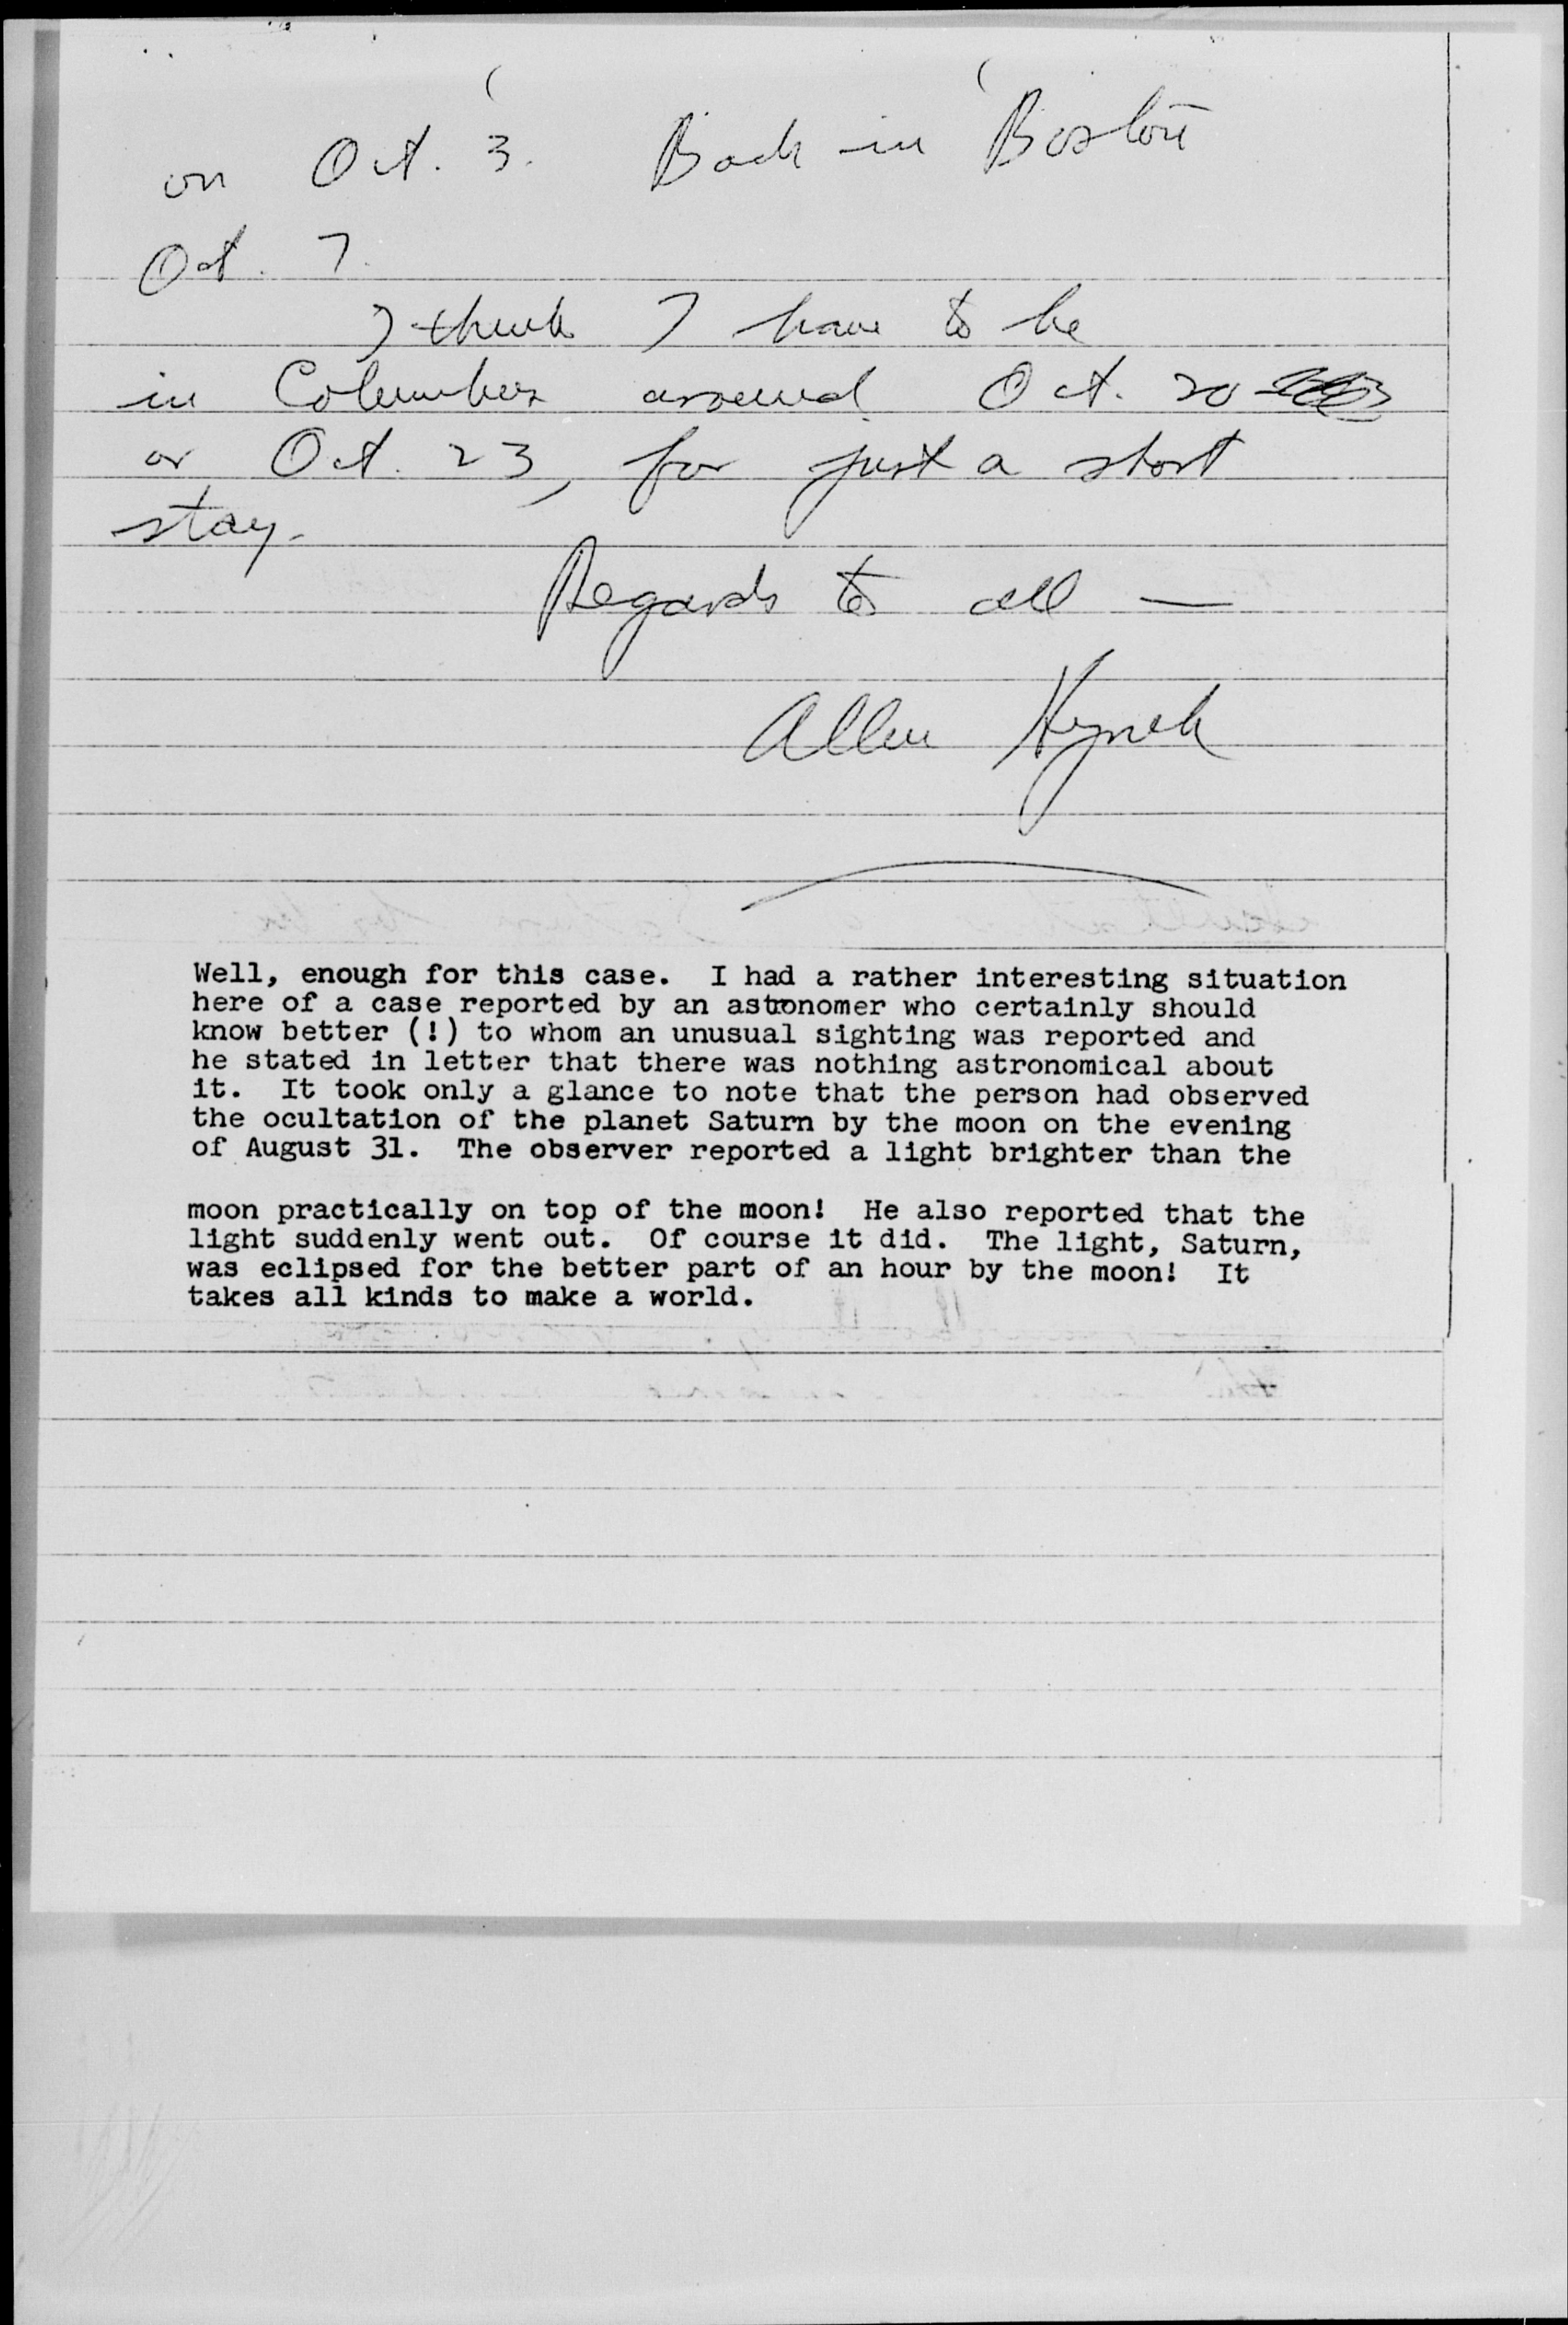 on Oct. 3. Back in Boston
Oct. 7.
I think I have to be
in Columbus around Oct. 20
or Oct. 23, for just a short
stay.
Regards to all —
Allen Hynek
Well, enough for this case. I had a rather interesting situation
here of a case reported by an astronomer who certainly should
know better (!) to whom an unusual sighting was reported and
he stated in letter that there was nothing astronomical about
it. It took only a glance to note that the person had observed
the ocultation of the planet Saturn by the moon on the evening
of August 31. The observer reported a light brighter than the
moon practically on top of the moon! He also reported that the
light suddenly went out. Of course it did. The light, Saturn,
was eclipsed for the better part of an hour by the moon! It
takes all kinds to make a world.